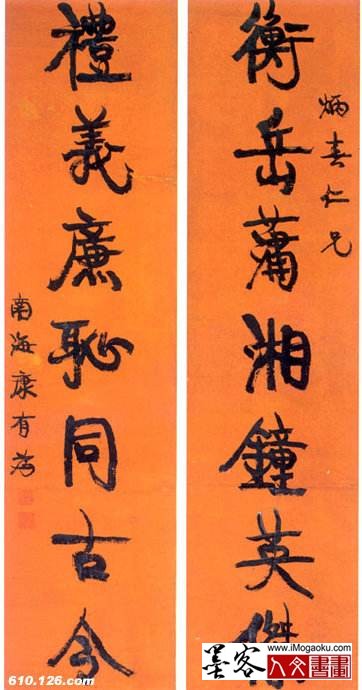 衡岳蕭湘鐘英傑
炳春仁兄
禮義廉恥同古今
南海康有為
墨客
人文書畫
www.iMogaoku.com
610.126.com